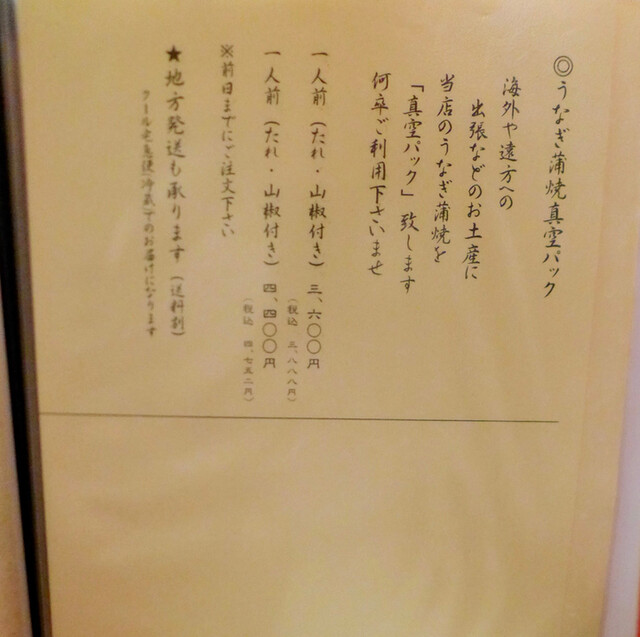 ◎うなぎ蒲焼真空パック
海外や遠方への
出張などのお土産に
当店のうなぎ蒲焼を
「真空パック」致します
何卒ご利用下さいませ
一人前（たれ・山椒付き）三、六〇〇円
（税込　三、八八八円）
一人前（たれ・山椒付き）四、四〇〇円
（税込　四、七五二円）
※前日までにご注文下さい
★地方発送も承ります（送料別）
クール宅急便（冷蔵）でのお届けになります